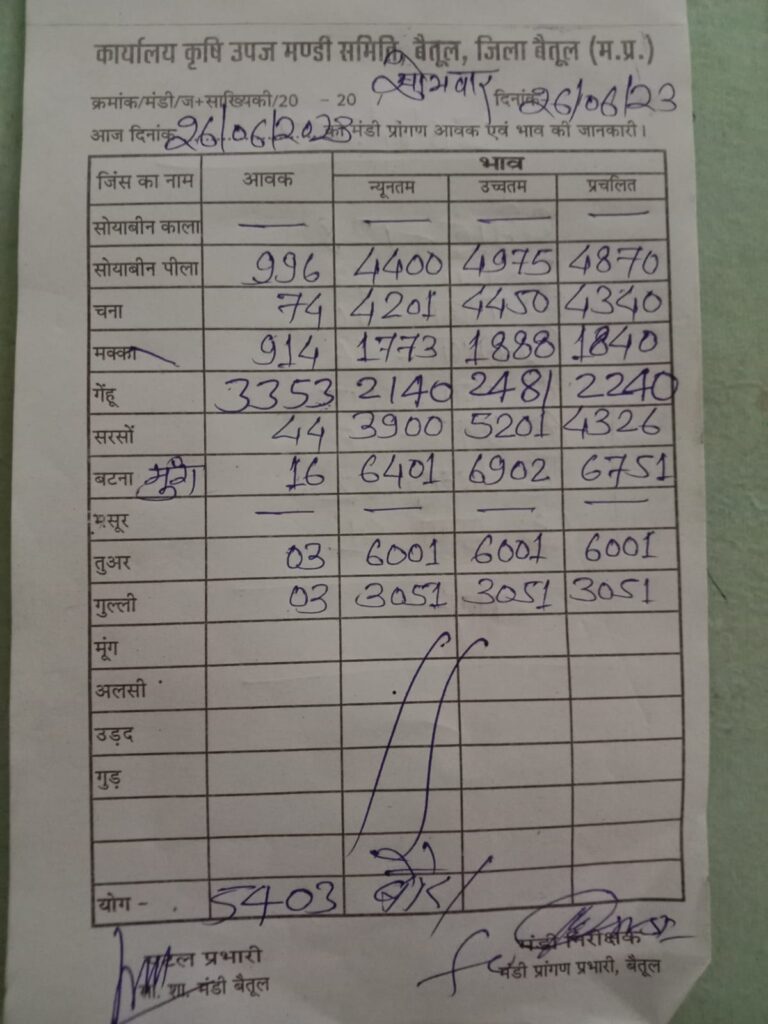 कार्यालय कृषि उपज मण्डी समिति, बैतूल, जिला बैतूल (म.प्र.)
क्रमांक/मंडी/ज+सांख्यिकी/20 - 20 / सोमवार दिनांक 26/06/23
आज दिनांक 26/06/2023 को मंडी प्रांगण आवक एवं भाव की जानकारी।
जिंस का नाम आवक भाव
न्यूनतम उच्चतम प्रचलित
सोयाबीन काला — — — —
सोयाबीन पीला 996 4400 4975 4870
चना 74 4201 4450 4340
मक्का 914 1773 1888 1840
गेंहू 3353 2140 2481 2240
सरसों 44 3900 5201 4326
बटना मूंग 16 6401 6902 6751
मसूर — — — —
तुअर 03 6001 6001 6001
गुल्ली 03 3051 3051 3051
मूंग
अलसी
उड़द
गुड़
योग - 5403 बोरे
प्रभारी मंडी निरीक्षक
शा. मंडी बैतूल मंडी प्रांगण प्रभारी, बैतूल